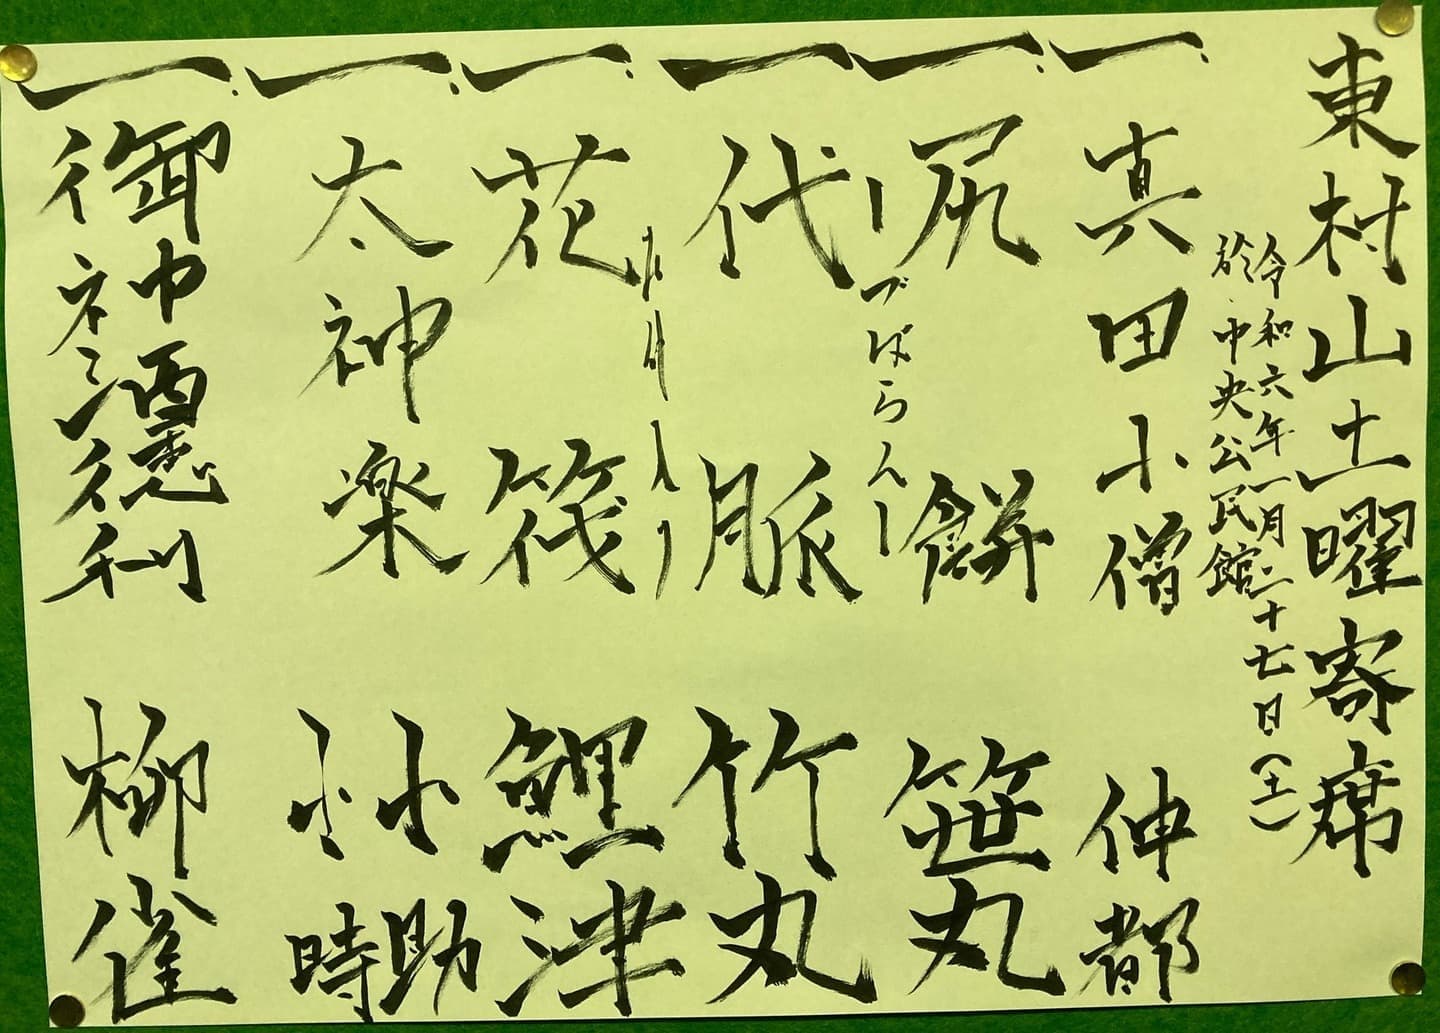 東村山土曜寄席
令和六年一月二十七日(土)
於・中央公民館
一、真田小僧 伸都
一、尻餅 笹丸
ーづばらんー
一、代脈 竹丸
一、花筏 鯉津
一、太神楽 小助 小時
一、御神酒徳利 柳雀